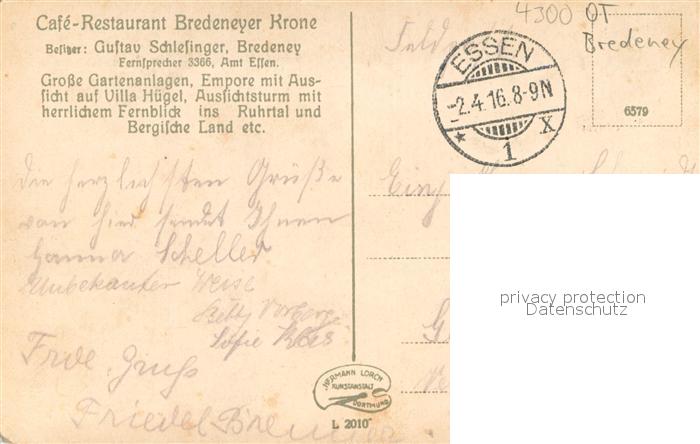 Café-Restaurant Bredeneyer Krone
Besitzer: Gustav Schlesinger, Bredeney
Fernsprecher 3366, Amt Essen.
Große Gartenanlagen, Empore mit Aus-
sicht auf Villa Hügel, Aussichtsturm mit
herrlichem Fernblick ins Ruhrtal und
Bergische Land etc.
Die herzlichsten Grüße
von hier sendet Ihnen
Hanna Scheller
Unbekanter Weise
Betty
Sofie
Frdl. Gruß
Friedel Bremer
4300 OT
Bredeney
ESSEN
-2.4.16.8-9N
* 1 X
6579
privacy protection
Datenschutz
HERMANN LORCH
KUNSTANSTALT
DORTMUND
L 2010